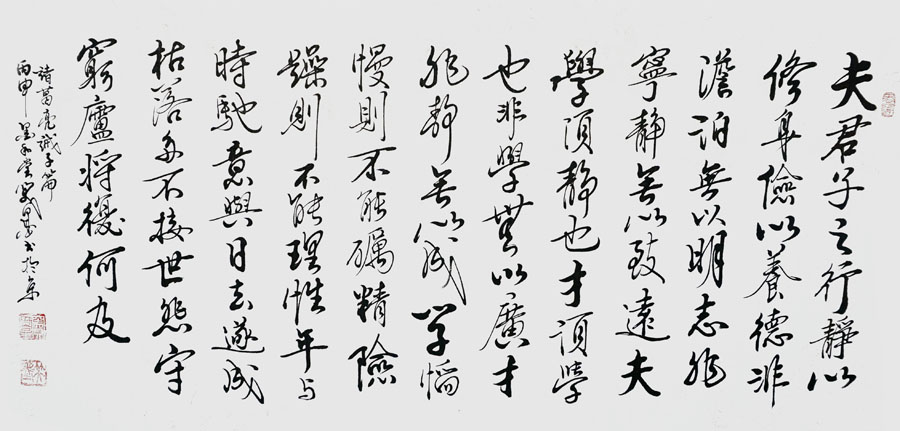 夫君子之行靜以
修身儉以養德非
澹泊無以明志非
寧靜無以致遠夫
學須靜也才須學
也非學無以廣才
非靜無以成學慆
慢則不能礪精險
躁則不能理性年与
時馳意與日去遂成
枯落多不接世悲守
窮廬將復何及
諸葛亮誡子篇
丙申